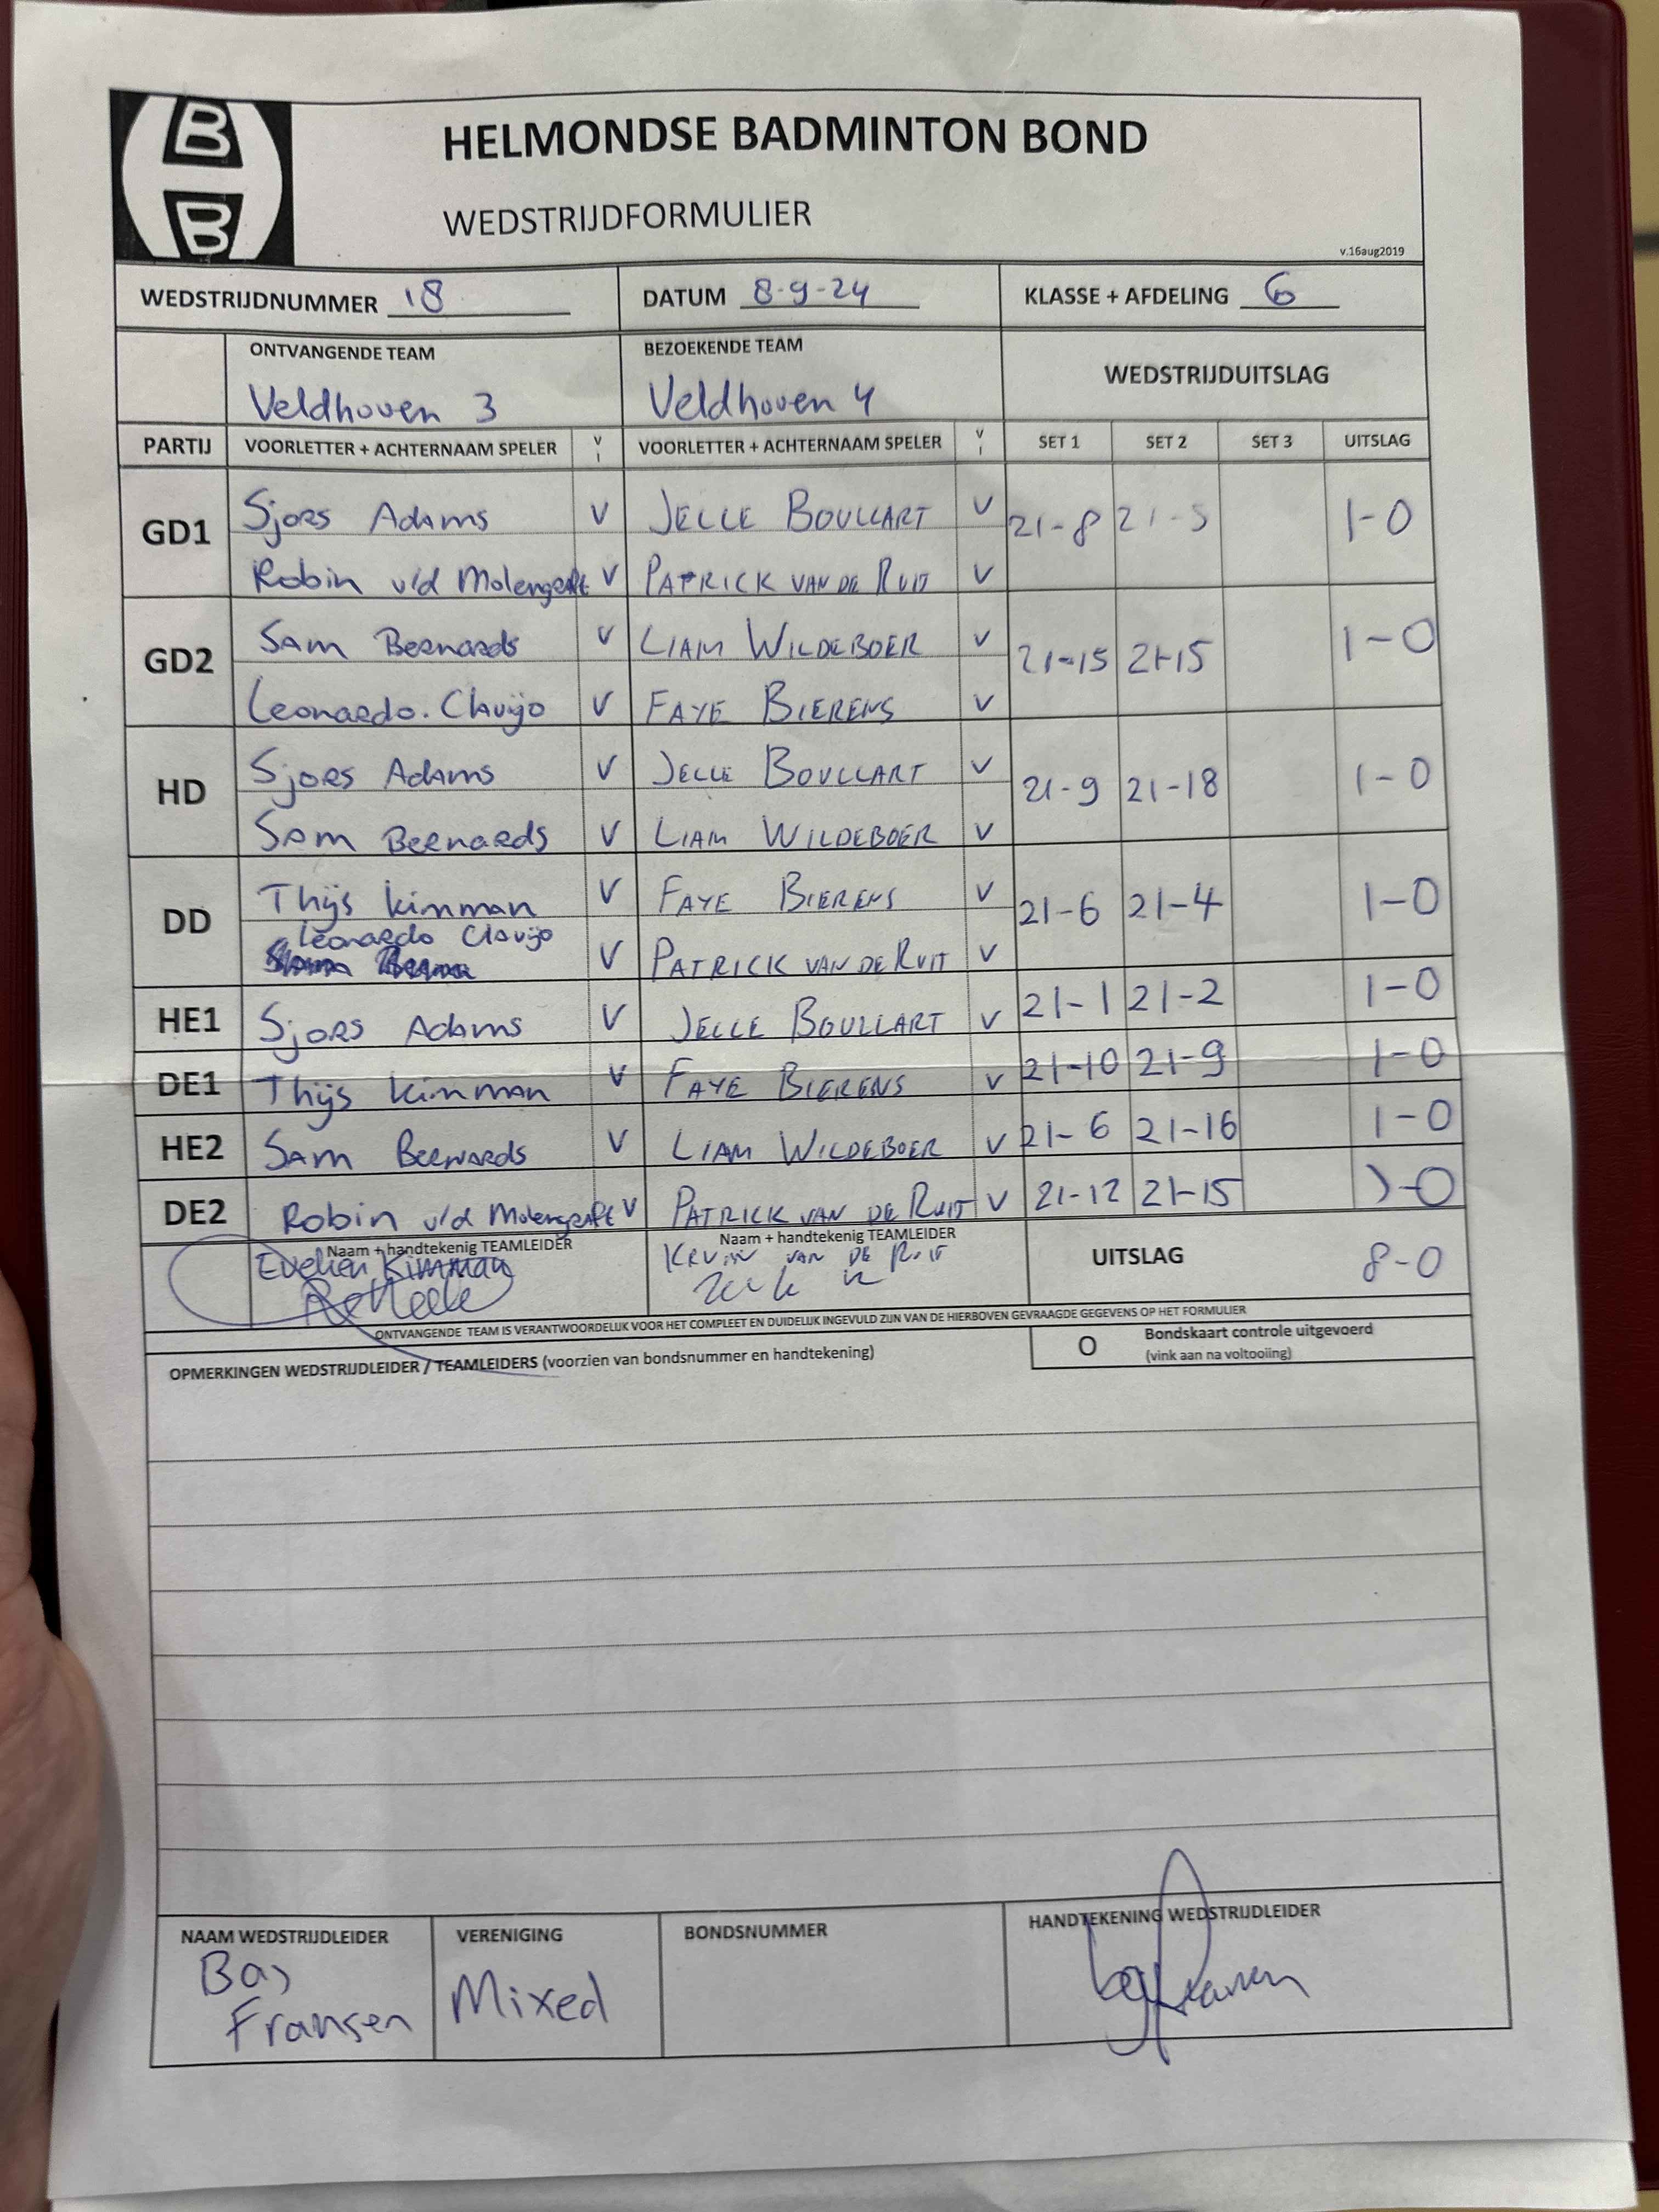 B
B
HELMONDSE BADMINTON BOND
WEDSTRIJDFORMULIER
v.16aug2019
WEDSTRIJDNUMMER 18 DATUM 8-9-24 KLASSE + AFDELING 6
ONTVANGENDE TEAM BEZOEKENDE TEAM WEDSTRIJDUITSLAG
Veldhoven 3 Veldhoven 4
PARTIJ VOORLETTER + ACHTERNAAM SPELER V I VOORLETTER + ACHTERNAAM SPELER V I SET 1 SET 2 SET 3 UITSLAG
GD1 Sjors Adams V JELLE BOULLART V 21-8 21-5 1-0
Robin v/d Molengraft V PATRICK VAN DE RUIT V
GD2 Sam Bernards V LIAM WILDEBOER V 21-15 21-15 1-0
Leonardo. Clavijo V FAYE BIERENS V
HD Sjors Adams V JELLE BOULLART V 21-9 21-18 1-0
Sam Bernards V LIAM WILDEBOER V
DD Thijs Kimman V FAYE BIERENS V 21-6 21-4 1-0
Leonardo Clavijo V PATRICK VAN DE RUIT V
HE1 Sjors Adams V JELLE BOULLART V 21-1 21-2 1-0
DE1 Thijs Kimman V FAYE BIERENS V 21-10 21-9 1-0
HE2 Sam Bernards V LIAM WILDEBOER V 21-6 21-16 1-0
DE2 Robin v/d Molengraft V PATRICK VAN DE RUIT V 21-12 21-15 1-0
Naam + handtekenig TEAMLEIDER Naam + handtekenig TEAMLEIDER UITSLAG 8-0
Evelien Kimman KEVIN VAN DE RUIT
ONTVANGENDE TEAM IS VERANTWOORDELIJK VOOR HET COMPLEET EN DUIDELIJK INGEVULD ZIJN VAN DE HIERBOVEN GEVRAAGDE GEGEVENS OP HET FORMULIER
OPMERKINGEN WEDSTRIJDLEIDER / TEAMLEIDERS (voorzien van bondsnummer en handtekening)
O Bondskaart controle uitgevoerd
(vink aan na voltooiing)
NAAM WEDSTRIJDLEIDER VERENIGING BONDSNUMMER HANDTEKENING WEDSTRIJDLEIDER
Bas Mixed
Fransen